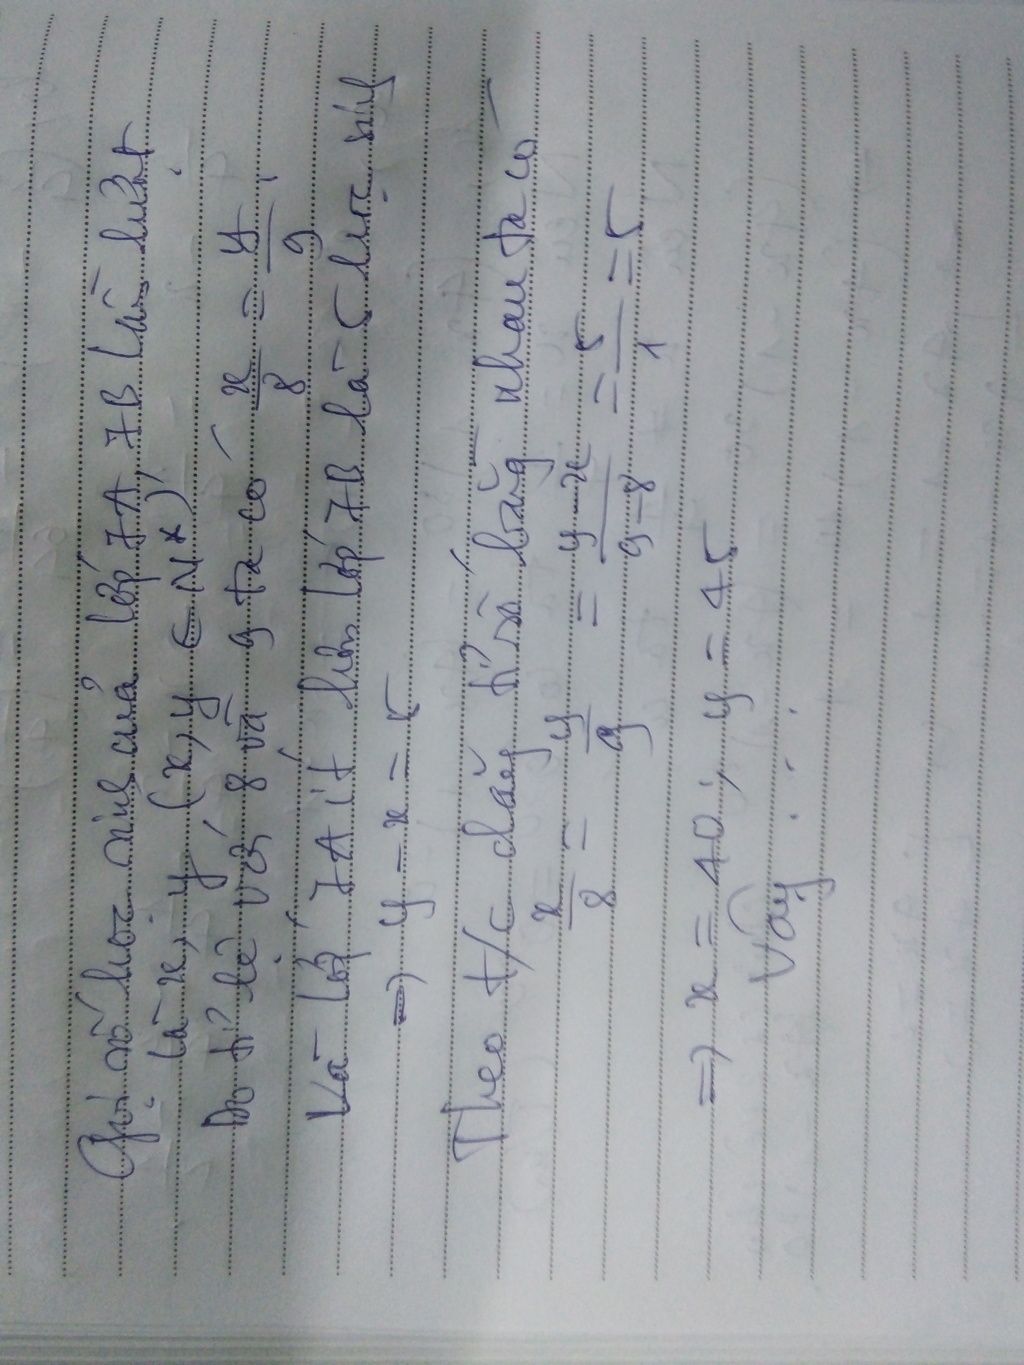 Gọi số học sinh của lớp 7A, 7B lần lượt
là x, y (x, y ∈ N*)
Do tỉ lệ với 8 và 9 ta có x/8 = y/9
Và lớp 7A ít hơn lớp 7B là 5 học sinh
=> y - x = 5
Theo t/c dãy tỉ số bằng nhau ta có
x/8 = y/9 = y-x/9-8 = 5/1 = 5
=> x = 40; y = 45
Vậy ...